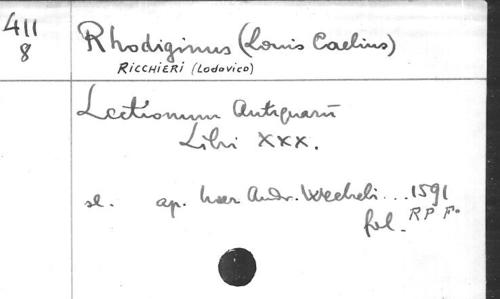 411
8
Rhodiginus (Louis Caelius)
RICCHIERI (Lodovico)
Lectionum Antiquarū
Libri XXX.
sl. ap. haer Andr. Wecheli... 1591
fol. RP F.